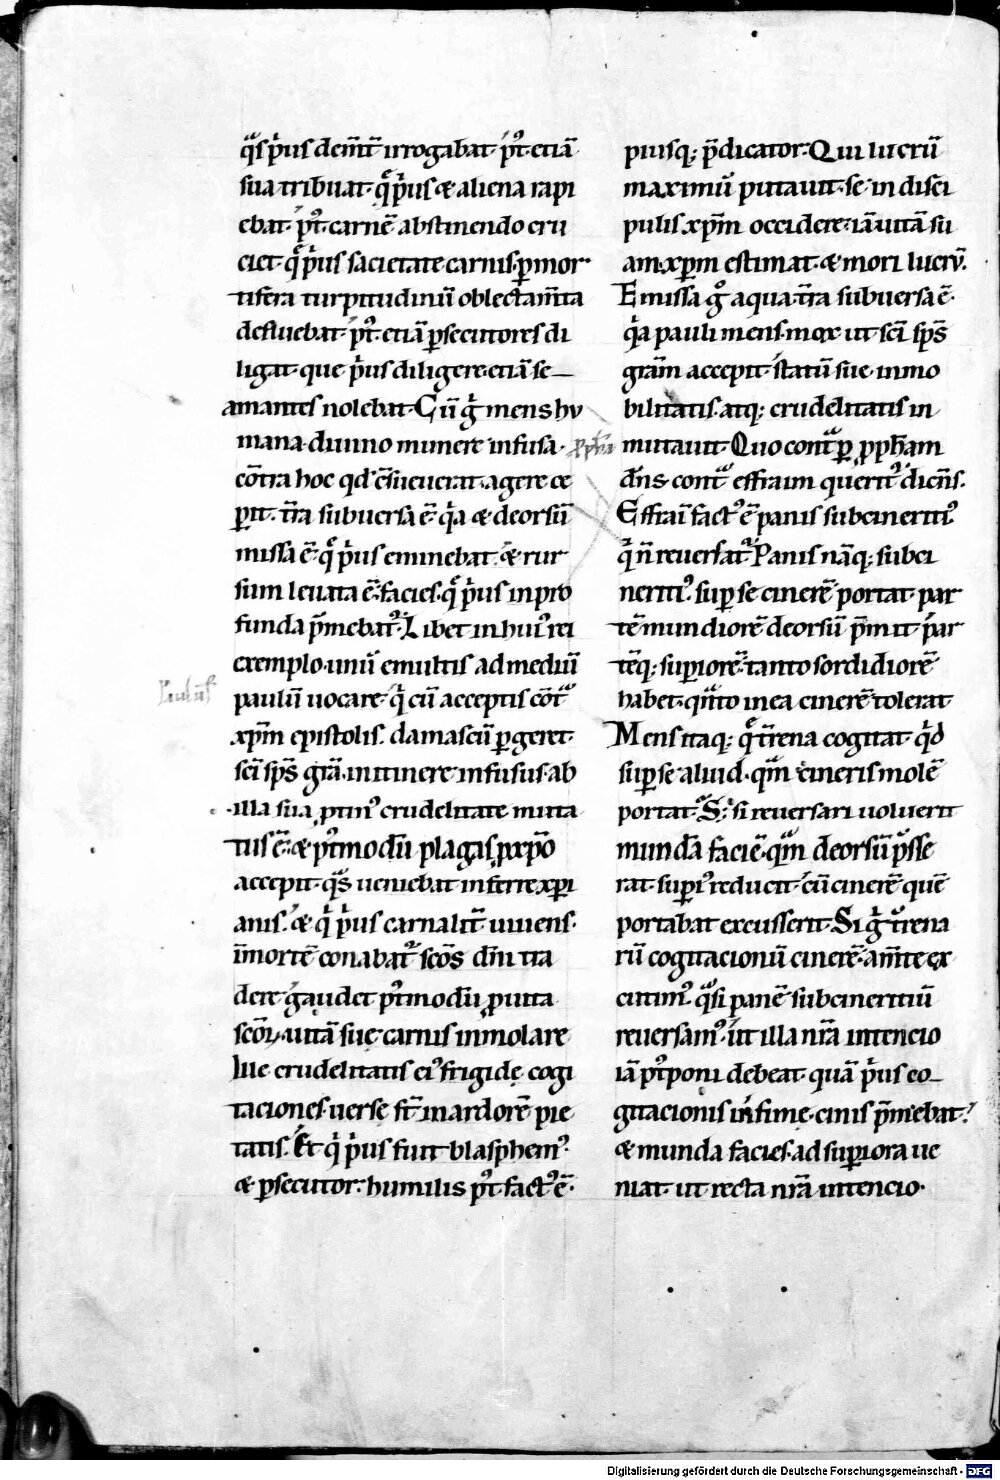 q̃s p̃us dem̃t̃ irrogabat· p̃t· etiã
sua tribuat· q̃ p̃us & aliena rapi
ebat· p̃t· carnẽ abstinendo cru
ciet· q̃ p̃us sacietate carnis· p̃ mor
tifera turpitudinũ oblectam̃ta
defluebat· p̃t· etiã p̃secutores di
ligat· que p̃us diligere· etiã se
amantes nolebat· Cũ g̃ mens hu
mana· diuino munere infusa·
cõtra hoc qd' ꝯsueuerat· agere ce
p̃it· t̃ra subuersa ẽ· q̃a & deorsũ
missa ẽ· q̃ p̃us eminebat· & rur
sum leuata ẽ· facies· q̃ p̃us in pro
funda p̃mebat᷒· Libet in hui᷒ rei
exemplo· unũ e multis ad mediũ
paulũ uocare· q̃ cũ acceptis cõt̃
xp̃m epistolis· damascũ p̃geret·
sc̃i sp̃s grã· in itinere infusus· ab
illa sua ptin᷒ crudelitate muta
tus ẽ· & p̃tmodũ plagas p xp̃o
accepit· q̃s ueniebat inferre xp̃i
anis· & q̃ p̃us carnalit̃ uiuens·
ĩ mortẽ conabat᷒ sc̃os dñi tra
dere· gaudet p̃tmodũ p uita
sc̃oꝝ· uitã suę carnis inmolare
Ille crudelitatis ei᷒ frigidę cogi
taciones· uerse st̃ in ardorẽ pie
tatis· Et q̃ p̃us fuit blasphem᷒·
& p̃secutor· humilis p̃t· fact᷒ ẽ·
Paulus
piusq; p̃dicator· Qui lucrũ
maximũ putauit· se in disci
pulis xp̃m occidere· iã uitã su
am· xp̃m estimat· & mori lucrũ·
Emissa g̃ aqua· t̃ra subuersa ẽ·
q̃a pauli mens· mox ut sc̃i sp̃s
grãm accepit· statũ sue inmo
bilitatis atq; crudelitatis in
mutauit· Quo cont̃ p̃ pph̃am
dñs· cont̃ effraim querit᷒ dicẽs·
Effraĩ fact᷒ ẽ panis subcineriti᷒·
q̃ ñ reuersat᷒· Panis nãq; subci
neriti᷒· sup̃ se cinerẽ portat· par
tẽ mundiorẽ deorsũ p̃mit· par
tẽq; sup̃iorẽ· tanto sordidiorẽ
habet· q̃nto in ea cinerẽ tolerat
Mens itaq; q̃ t̃rena cogitat· q̃d
sup̃ se aliud· q̃m cineris molẽ
portat· S; si reuersari uoluerit
mundã faciẽ· q̃m deorsũ p̃sse
rat· sup̃i᷒ reducit· cũ cinerẽ quẽ
portabat excusserit· Si g̃ t̃rena
rũ cogitacionũ cinerẽ· a m̃te ex
cutim᷒· q̃si panẽ subcineritiũ
reuersam᷒· ut illa nr̃a intencio
iã p̃tponi debeat· quã p̃us co
gitacionis infimę· cinis p̃mebat·
& munda facies· ad sup̃iora ue
niat· ut recta nr̃a intencio·
Digitalisierung gefördert durch die Deutsche Forschungsgemeinschaft - DFG